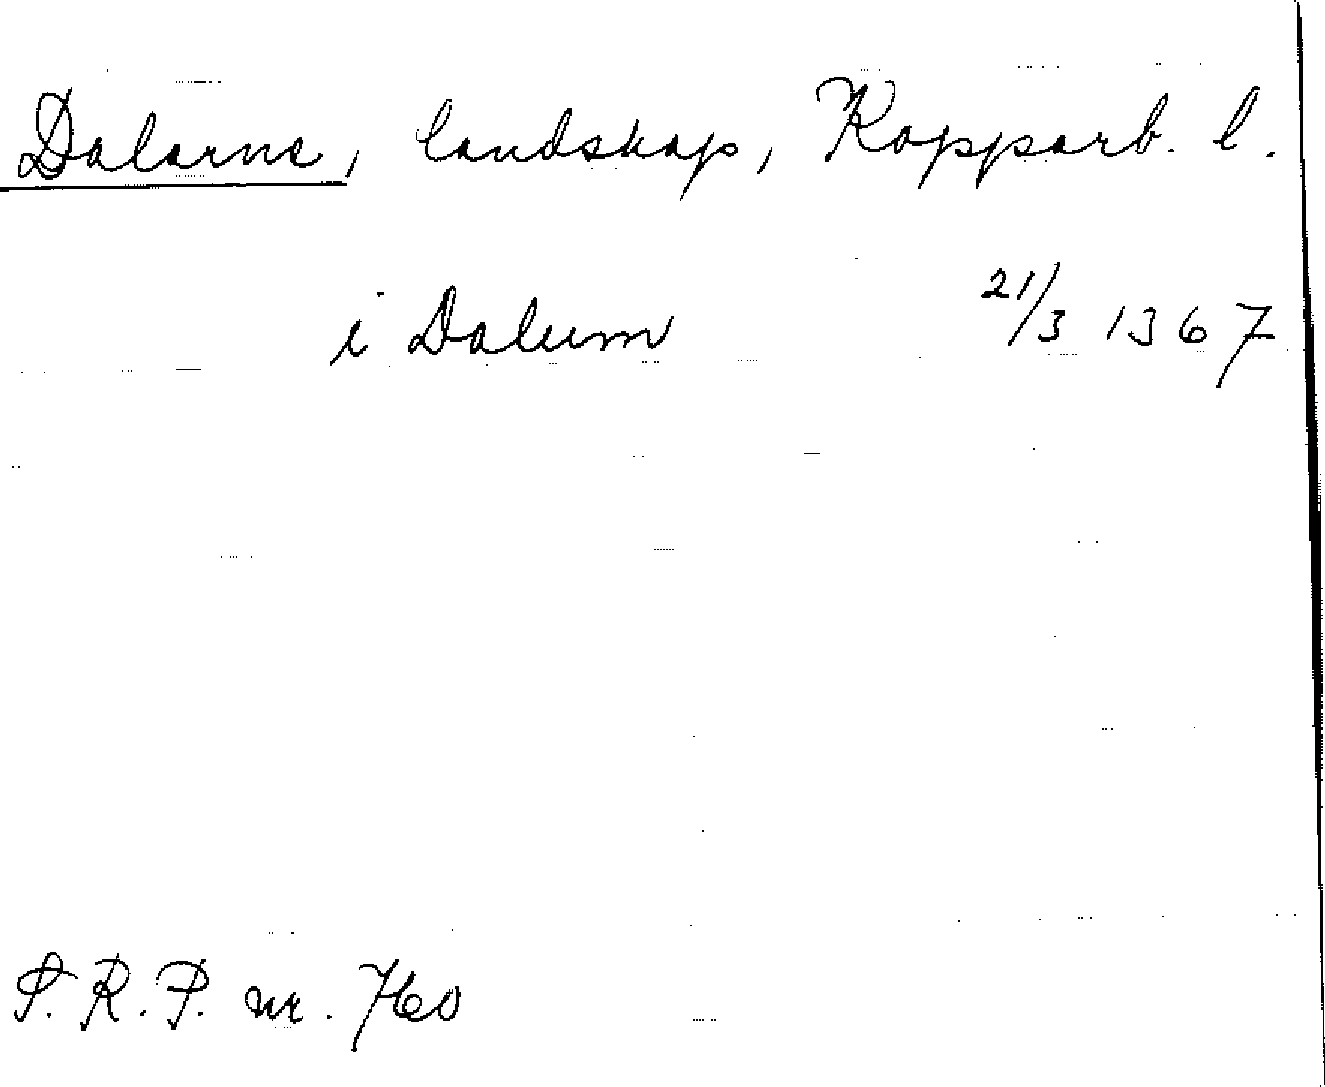 Dalarna, landskap, Kopparb. l.
i Dalum 21/3 1367
S. R. P. nr. 760